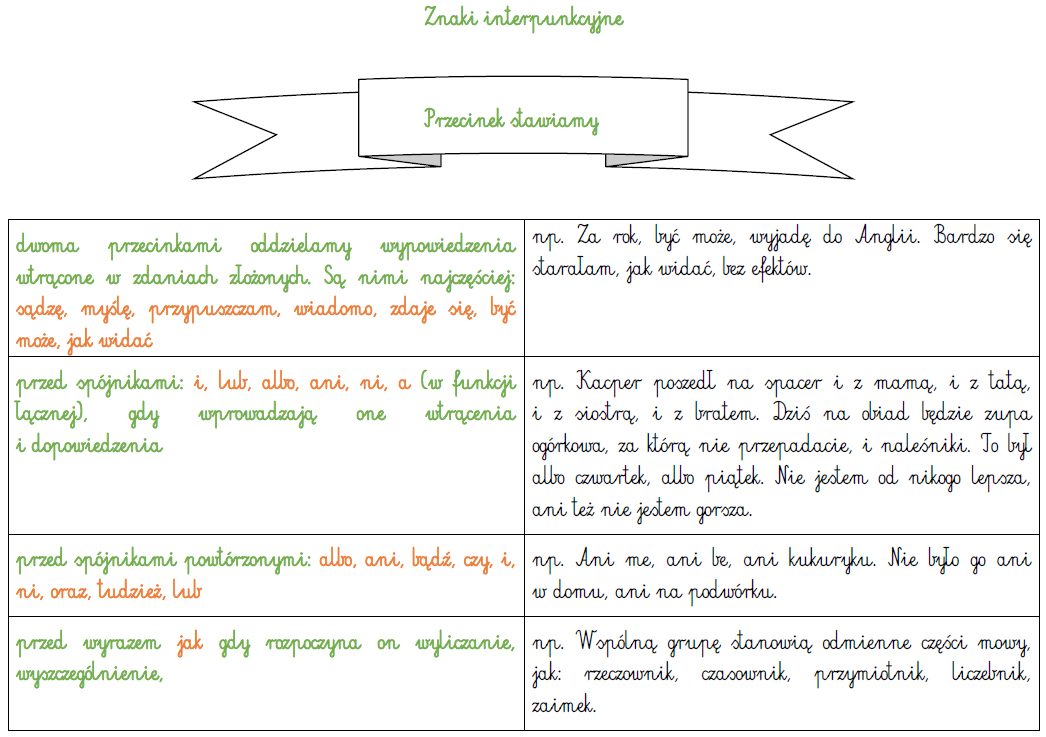 Znaki interpunkcyjne
Przecinek stawiamy
dwoma przecinkami oddzielamy wypowiedzenia
wtrącone w zdaniach złożonych. Są nimi najczęściej:
sądzę, myślę, przypuszczam, wiadomo, zdaje się, być
może, jak widać
np. Za rok, być może, wyjadę do Anglii. Bardzo się
starałam, jak widać, bez efektów.
przed spójnikami: i, lub, albo, ani, ni, a (w funkcji
łącznej), gdy wprowadzają one wtrącenia
i dopowiedzenia
np. Kacper poszedł na spacer i z mamą, i z tatą,
i z siostrą, i z bratem. Dziś na obiad będzie zupa
ogórkowa, za którą nie przepadacie, i naleśniki. To był
albo czwartek, albo piątek. Nie jestem od nikogo lepsza,
ani też nie jestem gorsza.
przed spójnikami powtórzonymi: albo, ani, bądź, czy, i,
ni, oraz, tudzież, lub
np. Ani me, ani be, ani kukuryku. Nie było go ani
w domu, ani na podwórku.
przed wyrazem jak gdy rozpoczyna on wyliczanie,
wyszczególnienie,
np. Wspólną grupę stanowią odmienne części mowy,
jak: rzeczownik, czasownik, przymiotnik, liczebnik,
zaimek.